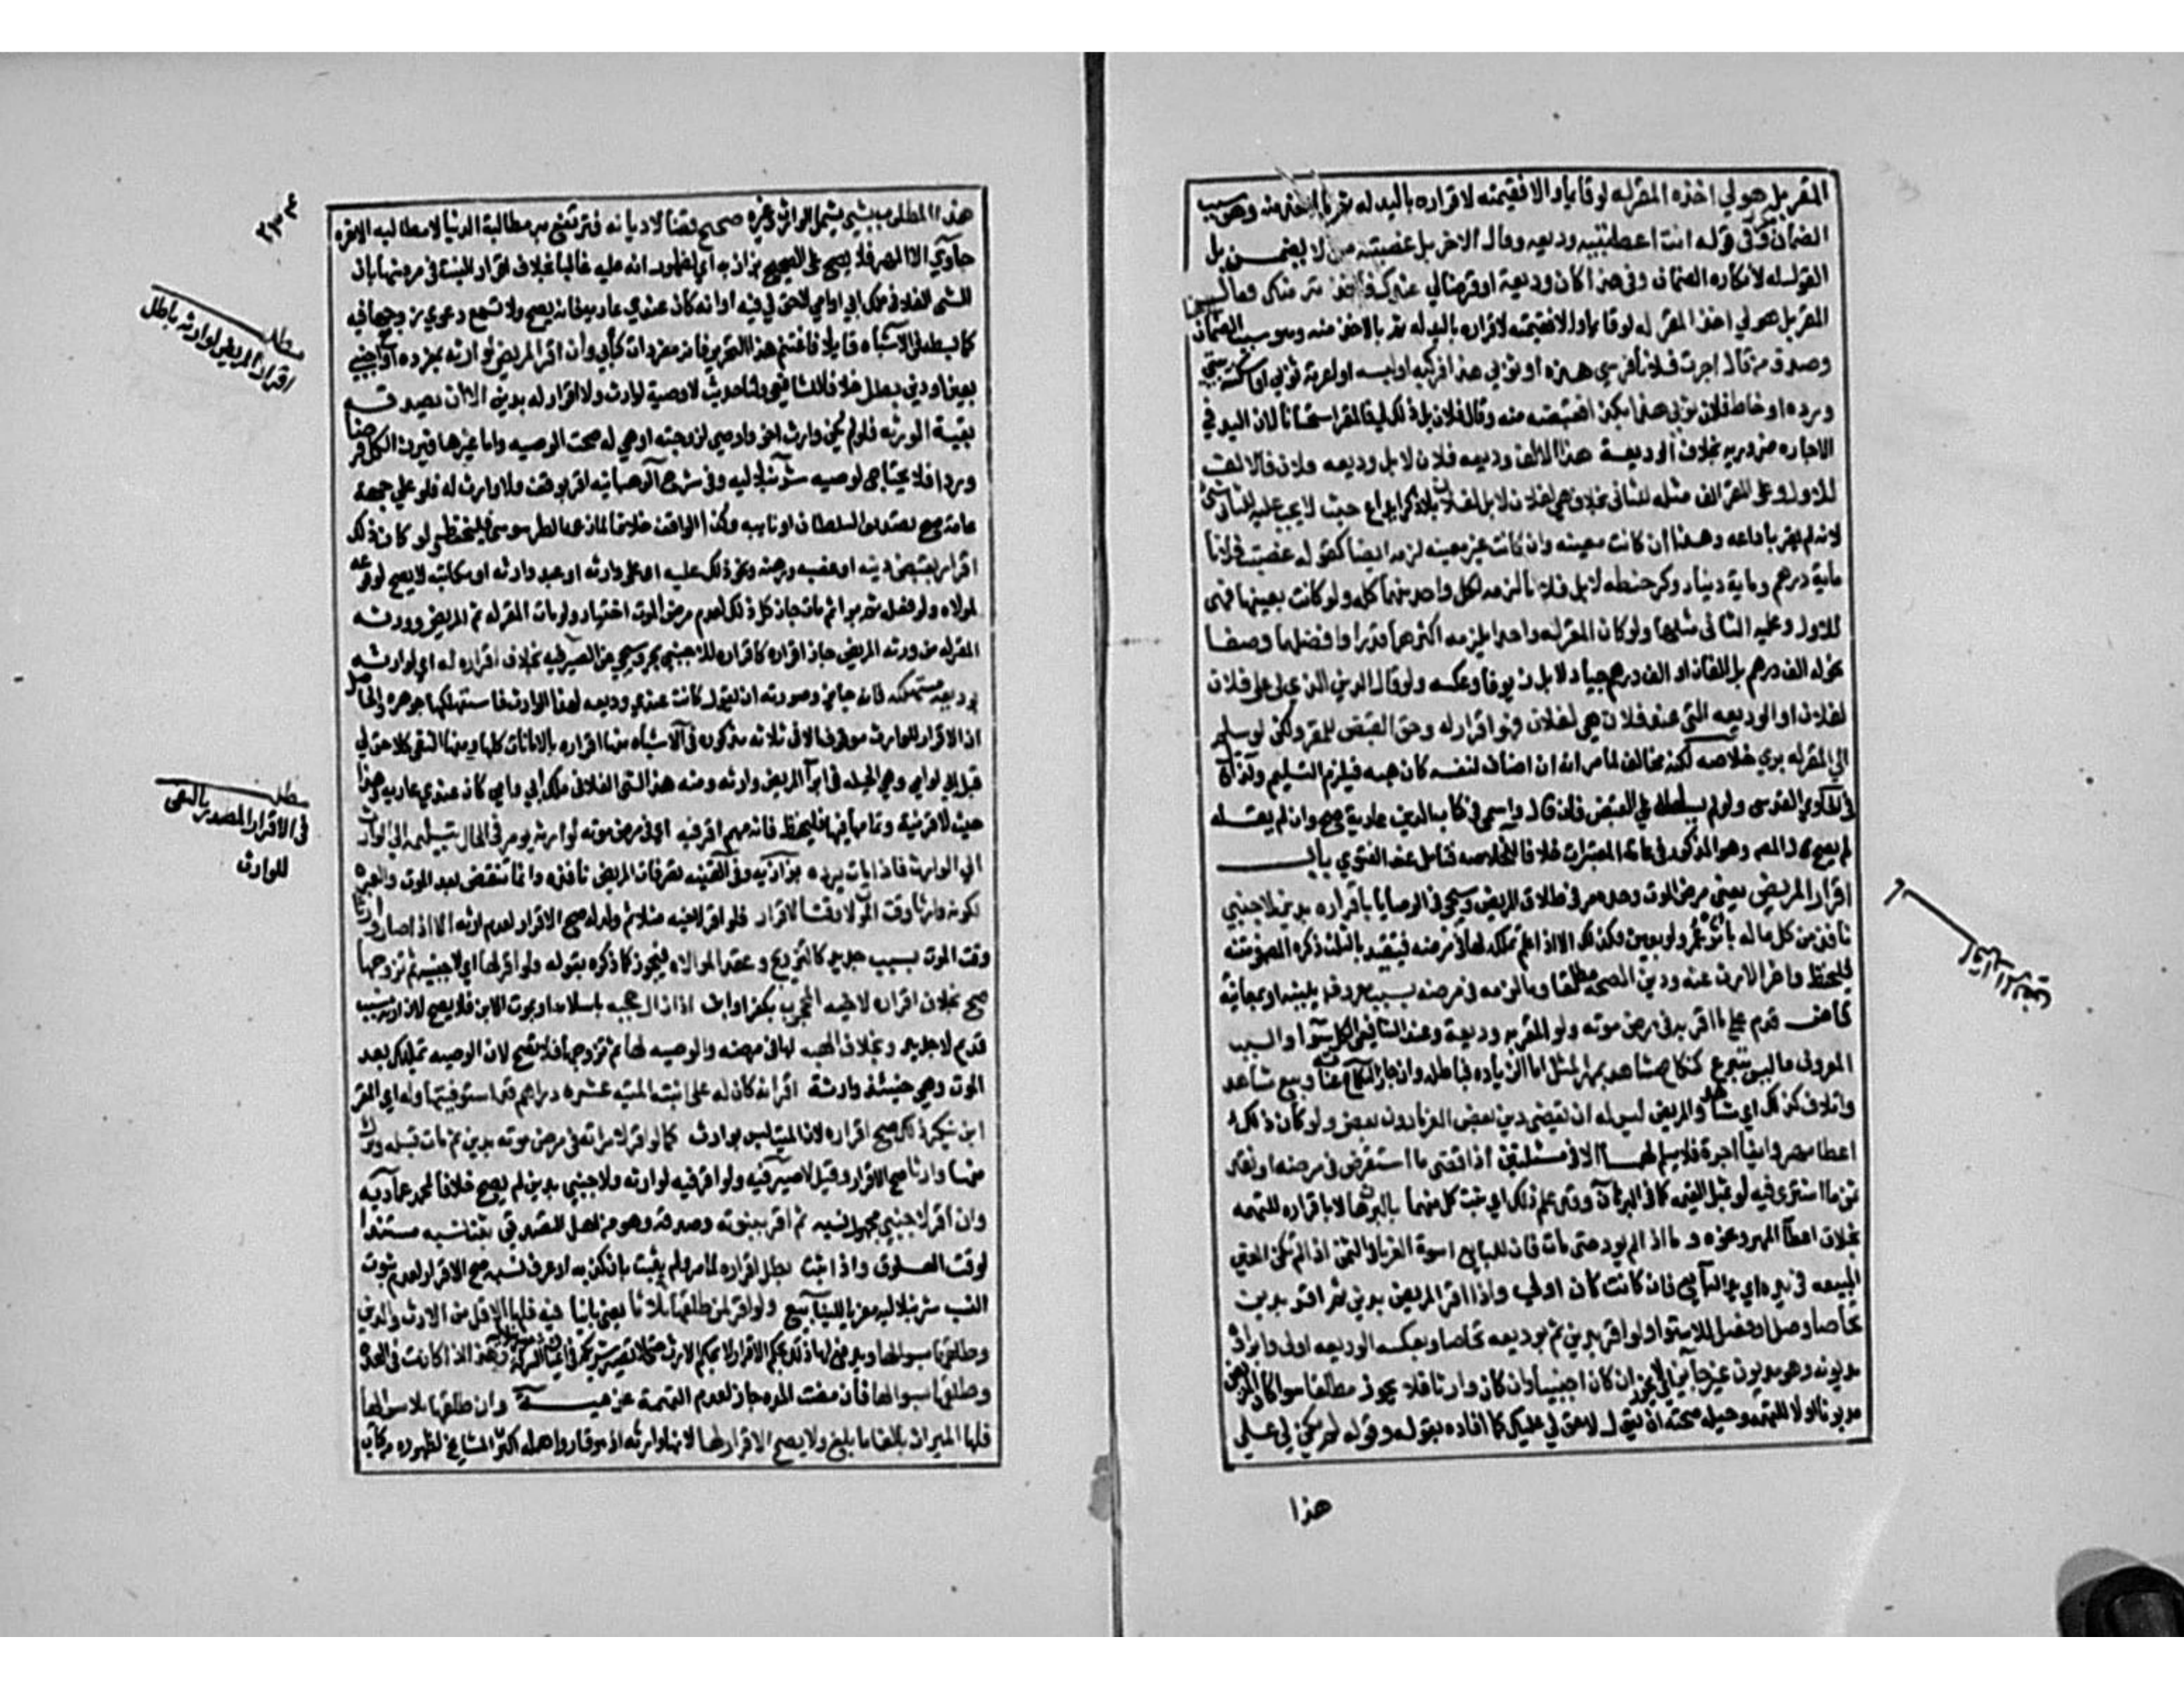 المقر بل هو لي اخذه المقر له لو قايما والا فقيمته لاقراره باليد له ثم بالاخذ منه وهو سبب
الضمان وفي قوله انت اعطيتنيه وديعه وقال الاخر بل غصبته مني لا يضمن بل
القول له لانكاره الضمان وفي هذا كان وديعة او قرضا لي عندك فاخذته منك فقال
المقر بل هو لي اخذ المقر له لو قايما والا فقيمته لاقراره باليد له ثم بالاخذ منه وهو سبب الضمان
وصدق من قال اجرت فلانا فرسي هذه او ثوبي هذا فركبه او لبسه او اعرته ثوبي او اسكنته بيتي
ورده او خاط فلان ثوبي هذا بكذا فقبضته منه وقال فلان بل ذلك لي فالقول للمقر استحسانا لان اليد في
الاجاره ضروريه بخلاف الوديعة هذا الالف وديعه فلان لا بل وديعه فلان فالالف
للاول وعلى المقر الف مثله للثاني بخلاف هي لفلان لا بل لفلان بلا ذكر ايداع حيث لا يجب عليه للثاني شئ
لانه لم يقر بايداعه وهذا ان كانت معينه وان كانت غير معينه لزمه ايضا كقوله غصبت فلانا
ماية درهم وماية دينار وكر حنطه لا بل فلانا لزمه لكل واحد منهما كله ولو كانت بعينها فهي
للاول وعليه للثاني مثلها ولو كان المقر له واحدا يلزمه اكثرهما قدرا وافضلهما وصفا
نحو له الف درهم بل الفان او الف درهم جياد لا بل زيوف او عكسه ولو قال الدين الذي لي على فلان
لفلان او الوديعه التي عند فلان هي لفلان فهو اقرار له وحق القبض للمقر ولكن لو سلم
الى المقر له بري خلاصه لكنه مخالف لما مر انه ان اضاف لنفسه كان هبه فيلزم التسليم ولذا قال
في الحاوي القدسي ولو لم يسلطه على القبض فان قال واسمي في كتاب الدين عارية صح وان لم يقله
لم يصح قال المصر وهو المذكور في عامة المعتبرات خلافا للخلاصه فتامل عند الفتوي باب
اقرار المريض يعني مرض الموت وحده مر في طلاق المريض وسيجي في الوصايا اقراره بدين لاجنبي
نافذ من كل ماله باثر عمر ولو بعين فكذلك الا اذا علم تملكه لها في مرضه فيتقيد بالثلث ذكره المصر في معينه
فليحفظ واخر الارث عنه ودين الصحة مطلقا وما لزمه في مرضه بسبب معروف ببينه او بمعاينة
قاض قدم على ما اقر به في مرض موته ولو المقر به وديعة وعند الشافعي الكل سواء والسبب
المعروف ما ليس بتبرع كنكاح مشاهد بمهر المثل اما الزياده فباطله وان جاز النكاح عنايه وبيع مشاهد
واتلاف كذلك اي مشاهد والمريض ليس له ان يقضي دين بعض الغرما دون بعض ولو كان ذلك
اعطا مهر وايفا اجرة فلا يسلم لهما الا في مسئلتين اذا قضى ما استقرض في مرضه او نقد
ثمن ما اشترى فيه لو بمثل القيمه كما في البرهان وقد علم ذلك اي ثبت كل منهما بالبرهان لا باقراره للتهمه
بخلاف اعطاء المهر ونحوه وما اذا لم يود حتى مات فان البايع اسوة الغرما في الثمن اذا لم تكن العين
المبيعه في يده اي يد البايع فان كانت كان اولى واذا اقر المريض بدين ثم اقر بدين
تحاصا وصل او فصل للاستوا ولو اقر بدين ثم بوديعه تحاصا وبعكسه الوديعه اولى وابراؤه
مديونه وهو مديون غير جائز اي لا يجوز ان كان اجنبيا وان كان وارثا فلا يجوز مطلقا سوا كان المريض
مديونا او لا للتهمه وحيله صحته ان يقول لا حق لي عليك كما افاده بقوله وقوله لم يكن لي على
هذا
اقرار المريض
٢٣٣
هذا المطلوب بشي يشمل الوارث وغيره صحيح قضا لا ديانه فترتفع به مطالبة الدنيا لا مطالبه الاخره
حاوي الا المهر فلا يصح على الصحيح بزازيه اي لظهور انه عليه غالبا بخلاف اقرار البنت في مرضها بان
الشي الفلاني ملك ابي او امي لا حق لي فيه او انه كان عندي عاريه فانه يصح ولا تسمع دعوي زوجها فيه
كما بسطه في الاشباه قايلا فاغتنم هذا التحرير فانه من مفردات كتابي وان اقر المريض لوارثه بمفرده او مع اجنبي
بعين او دين بطل خلافا للشافعي ولنا حديث لا وصية لوارث ولا اقرار له بدين الا ان يصدقه
بقية الورثه فلو لم يكن وارث اخر او اوصى لزوجته او هي له صحت الوصيه واما غيرهما فيرث الكل فرضا
وردا فلا يحتاج لوصيه شرنبلاليه وفي شرح الوهبانيه اقر بوقف ولا وارث له فلو على جهة
عامة صح بتصديق السلطان او نايبه وكذا الوقف خلافا لما زعمه الطرسوسي فليحفظ ولو كان ذلك
اقرار بقبض دينه او غصبه ورهنه ونحو ذلك عليه او على وارثه او عبد وارثه او مكاتبه لا يصح لوقوعه
لمولاه ولو فعل ثم برا ثم مات جاز كل ذلك لعدم مرض الموت اختيار ولو مات المقر له ثم المريض وورثه
المقر له من ورثه المريض جاز اقراره كاقراره للاجنبي بحر وسيجي عن الصيرفيه بخلاف اقراره له اي لوارثه
بوديعة مستهلكه فانه جايز وصورته ان يقول كانت عندي وديعه لهذا الوارث فاستهلكتها جوهره والحاصل
ان الاقرار للوارث موقوف الا في ثلاثه مذكوره في الاشباه منها اقراره بالامانات كلها ومنها النفي كلا حق لي
قبل ابي او امي وهي الحيله في ابرا المريض وارثه ومنه هذا الشي الفلاني ملك ابي وامي كان عندي عاريه وهذا
حيث لا قرينة وتمامه فيها فليحفظ فانه مهم اقر فيه اي في مرض موته لوارثه يومر في الحال بتسليمه الى الوارث
الي الوارث فاذا مات يرده بزازيه وفي القنيه تصرفات المريض نافذه وانما تنقض بعد الموت والعبره
لكونه وارثا وقت الموت لا وقت الاقرار فلو اقر لاخيه مثلا ثم ولد له صح الاقرار لعدم ارثه الا اذا صار وارثا
وقت الموت بسبب جديد كالتزويج وعقد الموالاه فيجوز كما ذكره بقوله ولو اقر لها اي لاجنبيه ثم تزوجها
صح بخلاف اقراره لاخيه المحجوب بكفر او ابن اذا زال حجبه باسلامه او بموت الابن فلا يصح لان ارثه بسبب
قديم لا جديد وبخلاف الهبه لها في مرضه والوصيه لها ثم تزوجها فلا تصح لان الوصيه تمليك بعد
الموت وهي حينئذ وارثة اقر انه كان له على ابنته الميته عشره دراهم قد استوفيتها وله اي المقر
ابن ينكر ذلك صح اقراره لان الميت ليس بوارث كما لو اقر لامراته في مرض موته بدين ثم مات قبله وترك
منها وارثا صح الاقرار وقيل لا صيرفيه ولو اقر فيه لوارثه ولاجنبي بدين لم يصح خلافا لمحمد عماديه
وان اقر لاجنبي مجهول نسبه ثم اقر ببنوته وصدقه وهو من اهل التصديق ثبت نسبه مستندا
لوقت العلوق واذا ثبت بطل اقراره لما مر ولو لم يثبت بان كذبه او عرف نسبه صح الاقرار لعدم ثبوت
النسب شرنبلاليه معزيا للينابيع ولو اقر لمن طلقها ثلاثا يعني باينا فيه فلها الاقل من الارث والدين
وطلقها بسوالها فان مضت العده جاز لعدم التهمة عزميه وان طلقها بلا سوالها
فلها الميراث بالغا ما بلغ ولا يصح الاقرار لها لانها وارثه اذ هو فار واهمله اكثر المشايخ لظهوره من كتاب
مطلب
اقرار المريض لوارثه باطل
مطلب
في الاقرار المصدر بالنفي
للوارث